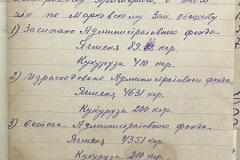 о том
что по Марковскому Зем. обществу
1) Засыпано Административного фонда
Ячменя 8982 кгр.
Кукурузы 410 кгр.
2) Израсходовано Административного фонда
Ячменя 4631 кгр.
Кукурузы 200 кгр.
3) Административного фонда
Ячменя 4351 кгр.
Кукурузы 210 кгр.